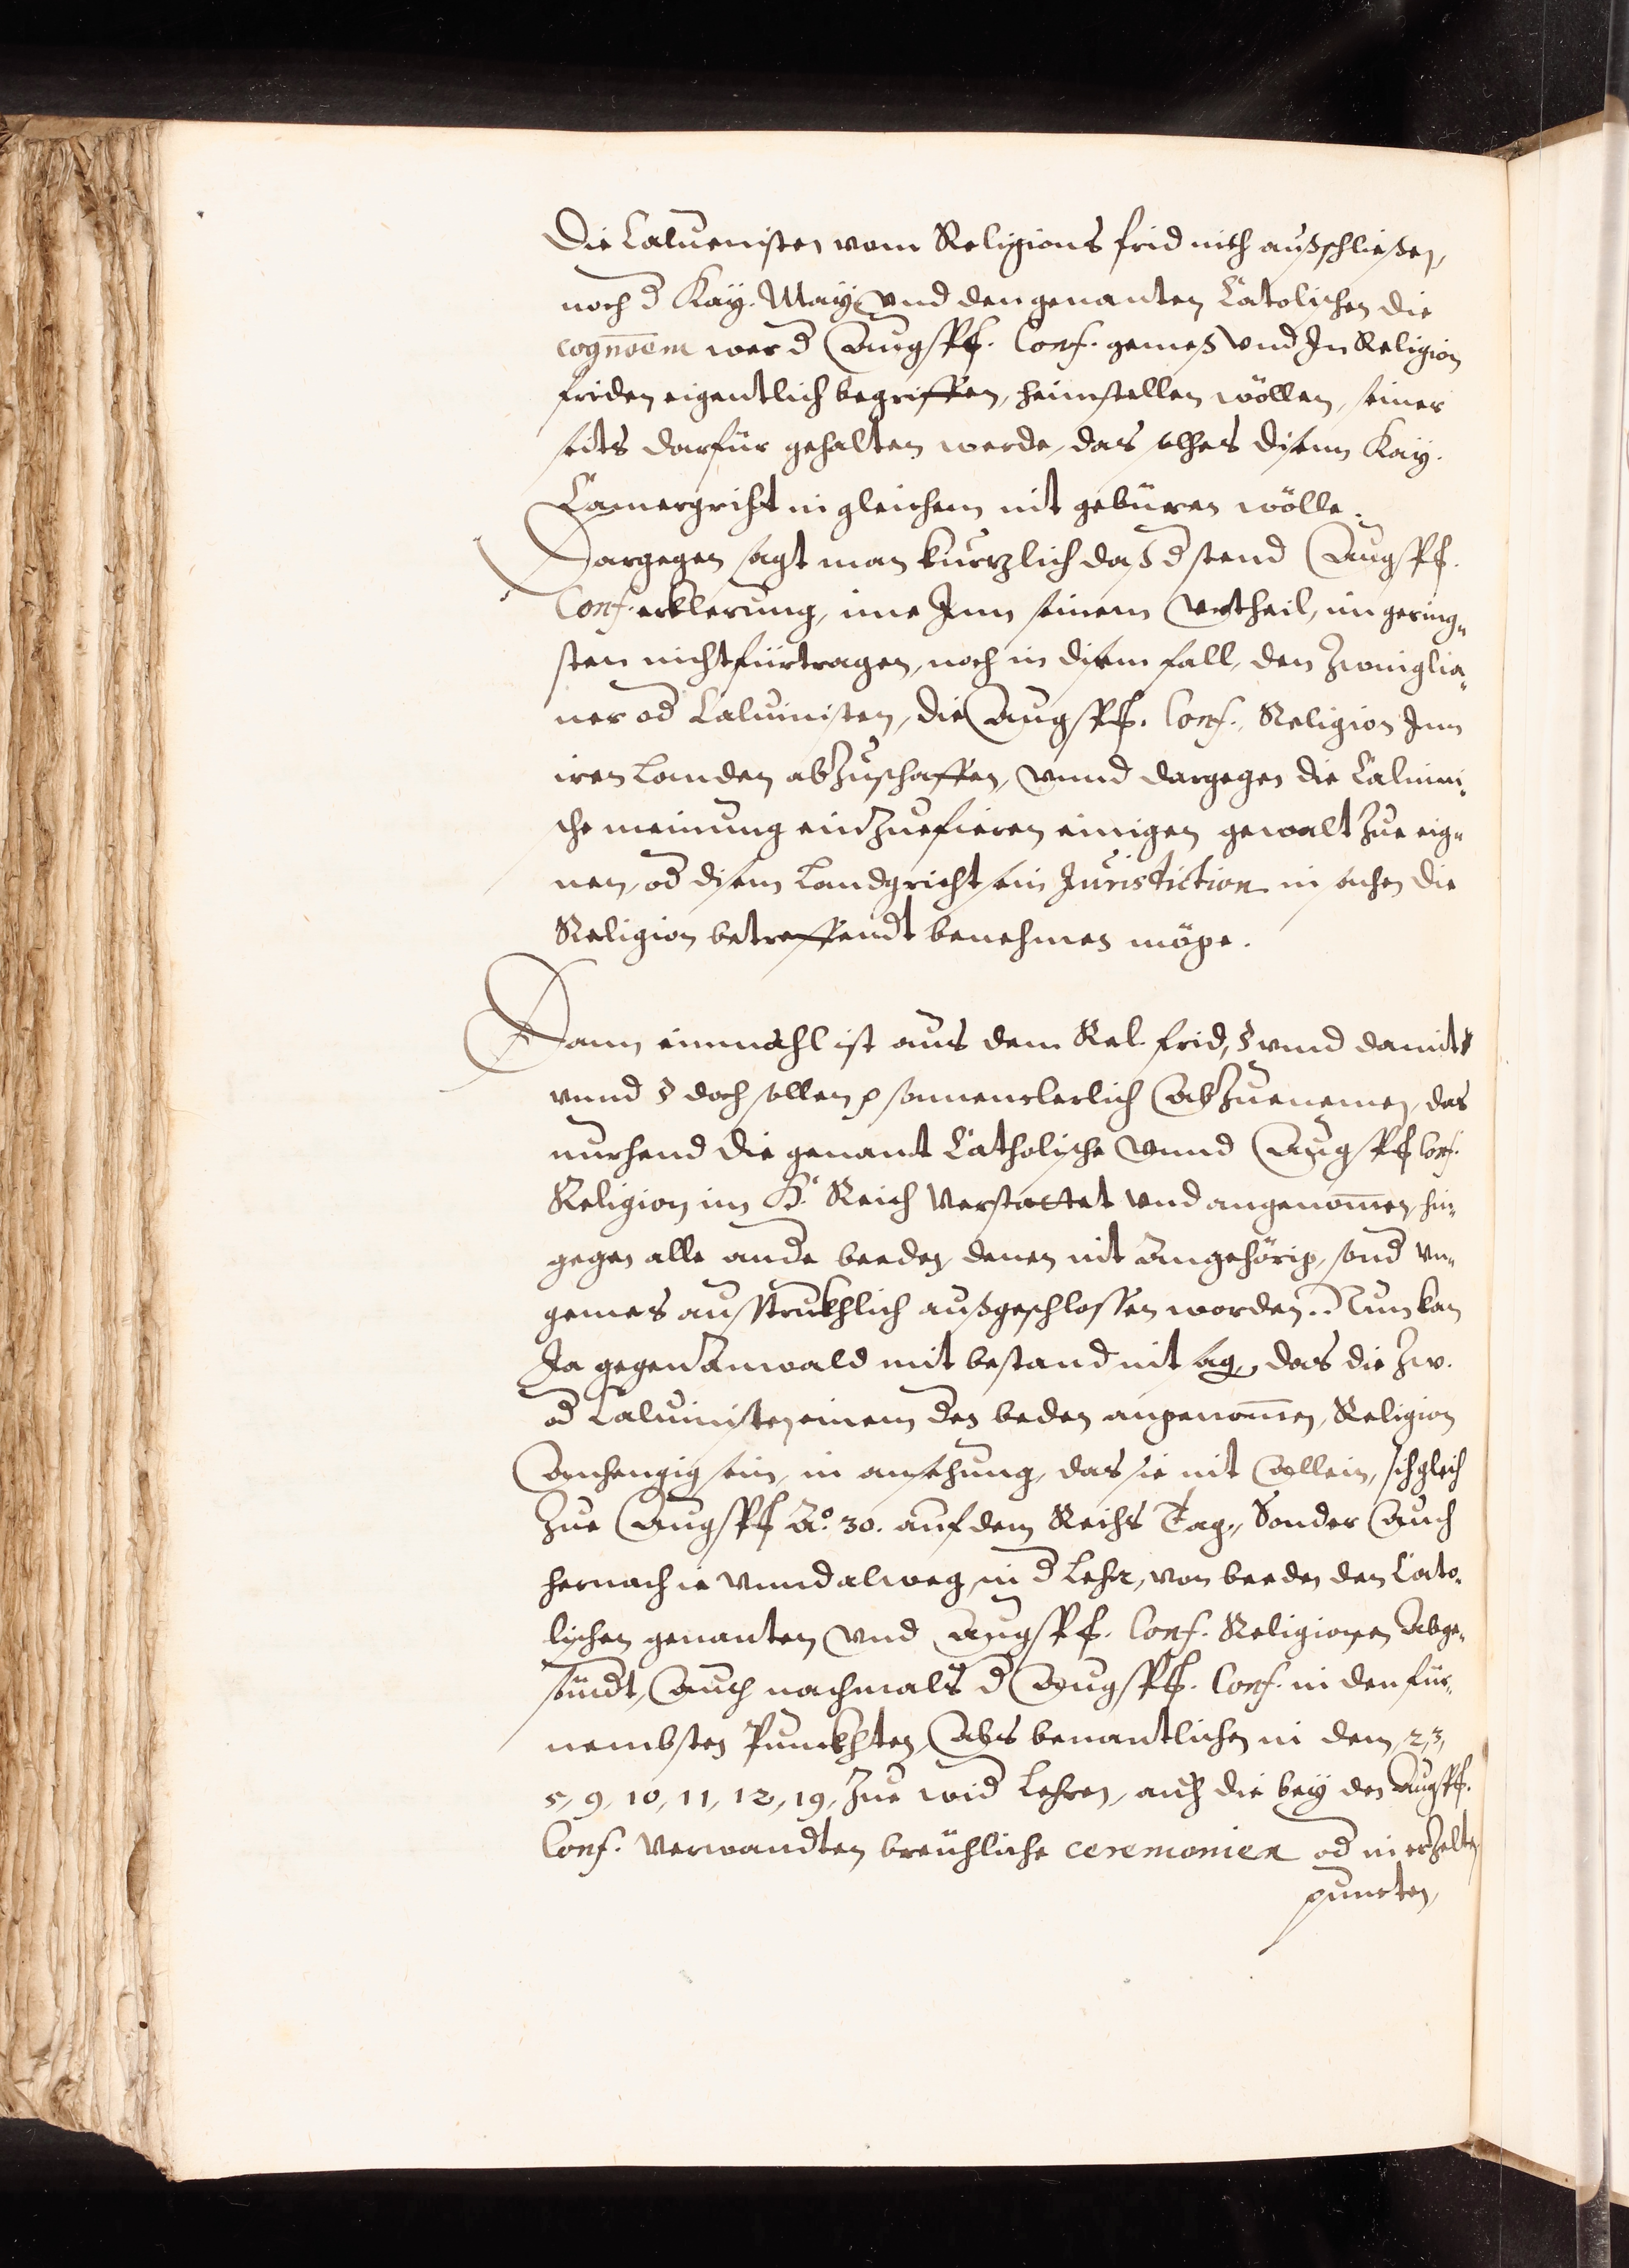 Die Caluenisten vom Religions frid nith außschließen,
noch d Kay. May. vnd den genanten Catolischen die
cognoem wer d Augspf. Conf. gemeß vnd In Religion
friden eigentlich begriffen, heimstellen wöllen, seiner
seits darfür gehalten werde, das solhes disem Kay.
Camergriht in gleichem nit gebüren wölle.
Dargegen sagt man kurzlich daß d stend Augspf.
Conf. erklerung, ime Inn seinem vrtheil, im gering„
sten nicht fürtragen, noch in disem fall, den Zwinglia„
ner od Caluinisten, die Augspf. Conf. Religion Inn
iren Landen abzuschaffen, vnnd dargegen die Caluini„
sche meinung einzuefieren einigen gewalt zue eig„
nen, od disem Landgricht sein Jurisdiction in sachen die
Religion betreffendt benehmen möge.
Dann einmahl ist aus dem Rel. frid, § vnnd damit
vnnd § doch sollen p sonnenclerlich abzuenemen, das
nurhend die genant Catholische vnnd Augspf Conf.
Religion im H. Reich verstattet vnd angenomen, hin„
gegen alle ande beeden denen nit angehörig, sond vn„
gemes ausstrukhlich außgeschlossen worden. Nun kan
Ja gegen Anwald mit bestand nit sag, das die Zw.
od Caluinisten einem des beden angenomen Religion
anhengig sein, in ansehung, das sie nit allein, sich gleich
zue Augspf Ao. 30. auf dem Reichs Tag, Sonder auch
hernach ie vnnd alweg, in d Lehr, von beeden den Cato„
lischen genanten vnd Augspf. Conf. Religionen abge„
sündt, auch nachmals d Augspf. Conf. in den für„
nembsten Punckhten, als benantlichen in dem 2, 3,
5, 9, 10, 11, 12, 19, zue wid Lehren, auch die bey den Augspf.
Conf. verwandten breuchliche ceremonien od in erzelten
puncten,